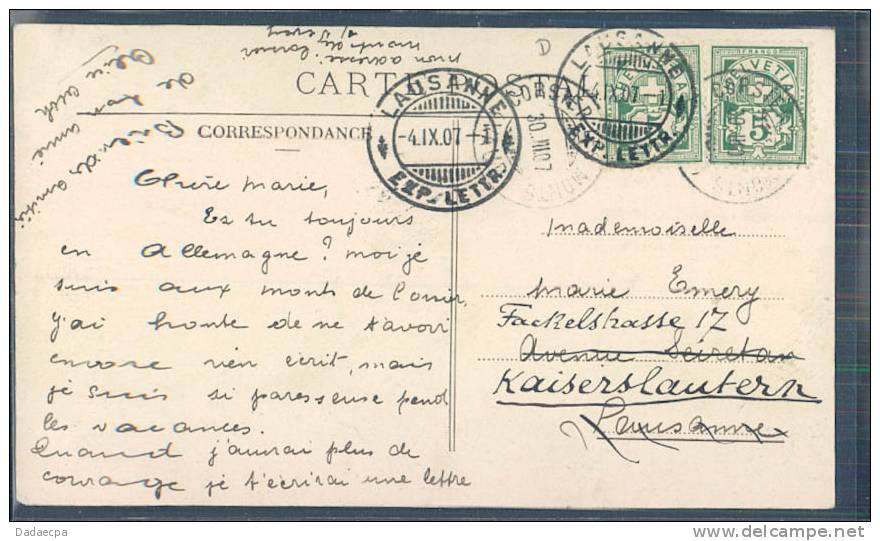 mon adresse
Monts de Corsier
s/ Vevey
CARTE POSTALE
CORRESPONDANCE
LAUSANNE
-4.IX.07-
EXP. LETTR.
LAUSANNE
-4.IX.07-1
EXP. LETTR.
HELVETIA
FRANCO
5
CORS
30.
MONTS
D
Chère Marie,
Es tu toujours
en Allemagne? moi je
suis aux monts de Corsier,
j'ai honte de ne t'avoir
encore rien écrit, mais
je suis si paresseuse pend
les vacances.
Quand j'aurai plus de
courage je t'écrirai une lettre
Bien des amitiés
de ton amie
Mademoiselle
Marie Emery
Fackelstrasse 17
Avenue Secretan
Kaiserslautern
Lausanne
Dadaecpa
www.delcampe.net